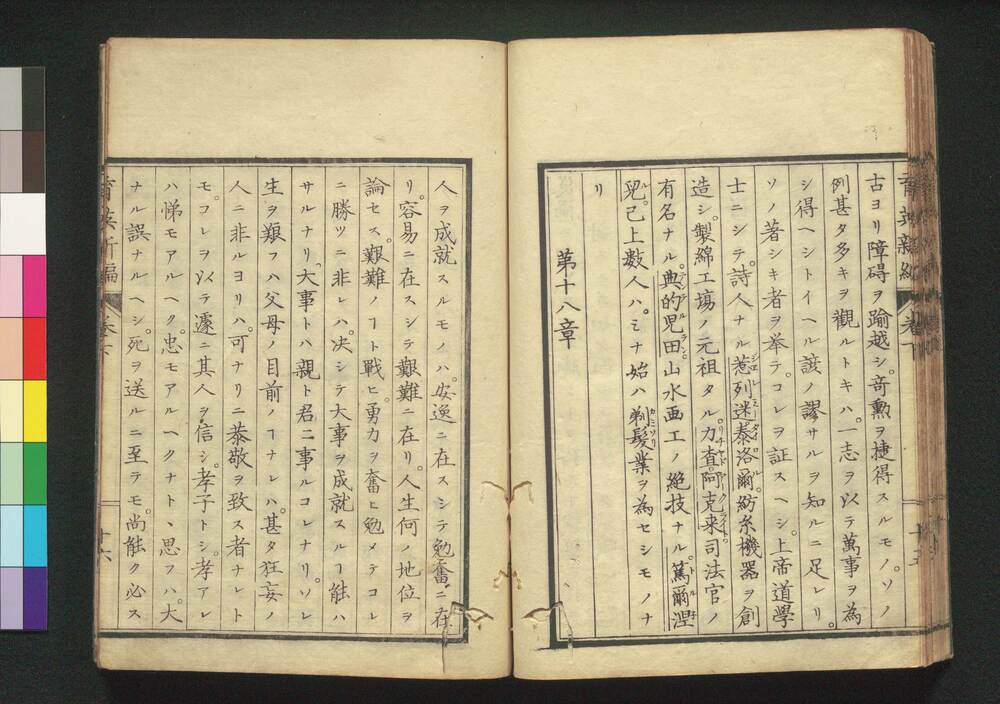 育英新編 卷下 十五
古ヨリ障碍ヲ踰越シ。竒勲ヲ捷得スルモノ。ソノ
例甚タ多キヲ觀ルトキハ。一志ヲ以テ萬事ヲ為
シ得ヘシトイヘル諺ノ謬サルヲ知ルニ足レリ。
ソノ著シキ者ヲ举テ。コレヲ証スヘシ。上帝道學
士ニシテ。詩人ナル惹列迷泰洛爾。紡糸機器ヲ創
造シ。製綿工塲ノ元祖タル。力查阿克来。司法官ノ
有名ナル。典的児田。山水画工ノ絶技ナル。篤爾涅
児。己上數人ハ。ミナ始ハ剃髪業ヲ為セシモノナ
リ
第十八章
人ヲ成就スルモノハ。安逸ニ在スシテ勉奮ニ在
リ。容易ニ在スシテ艱難ニ在リ。人生何ノ地位ヲ
論セス。艱難ノヿト戰ヒ。勇力ヲ奮ヒ勉メテコレ
ニ勝ツニ非レハ。决シテ大事ヲ成就スルヿ能ハ
サルナリ。大事トハ親ト君ニ事ルコレナリ。ソレ
生ヲ艱フハ父母ノ目前ノヿナレハ。甚タ狂妄ノ
人ニ非ルヨリハ。可ナリニ恭敬ヲ致ス者ナレト
モ。コレヲ以テ遽ニ其人ヲ信シ。孝子トシ。孝アレ
ハ悌モアルヘク。忠モアルヘクナトヽ思フハ。大
ナル誤ナルヘシ。死ヲ送ルニ至テモ。尚能ク必ス
育英新編 卷下 十六